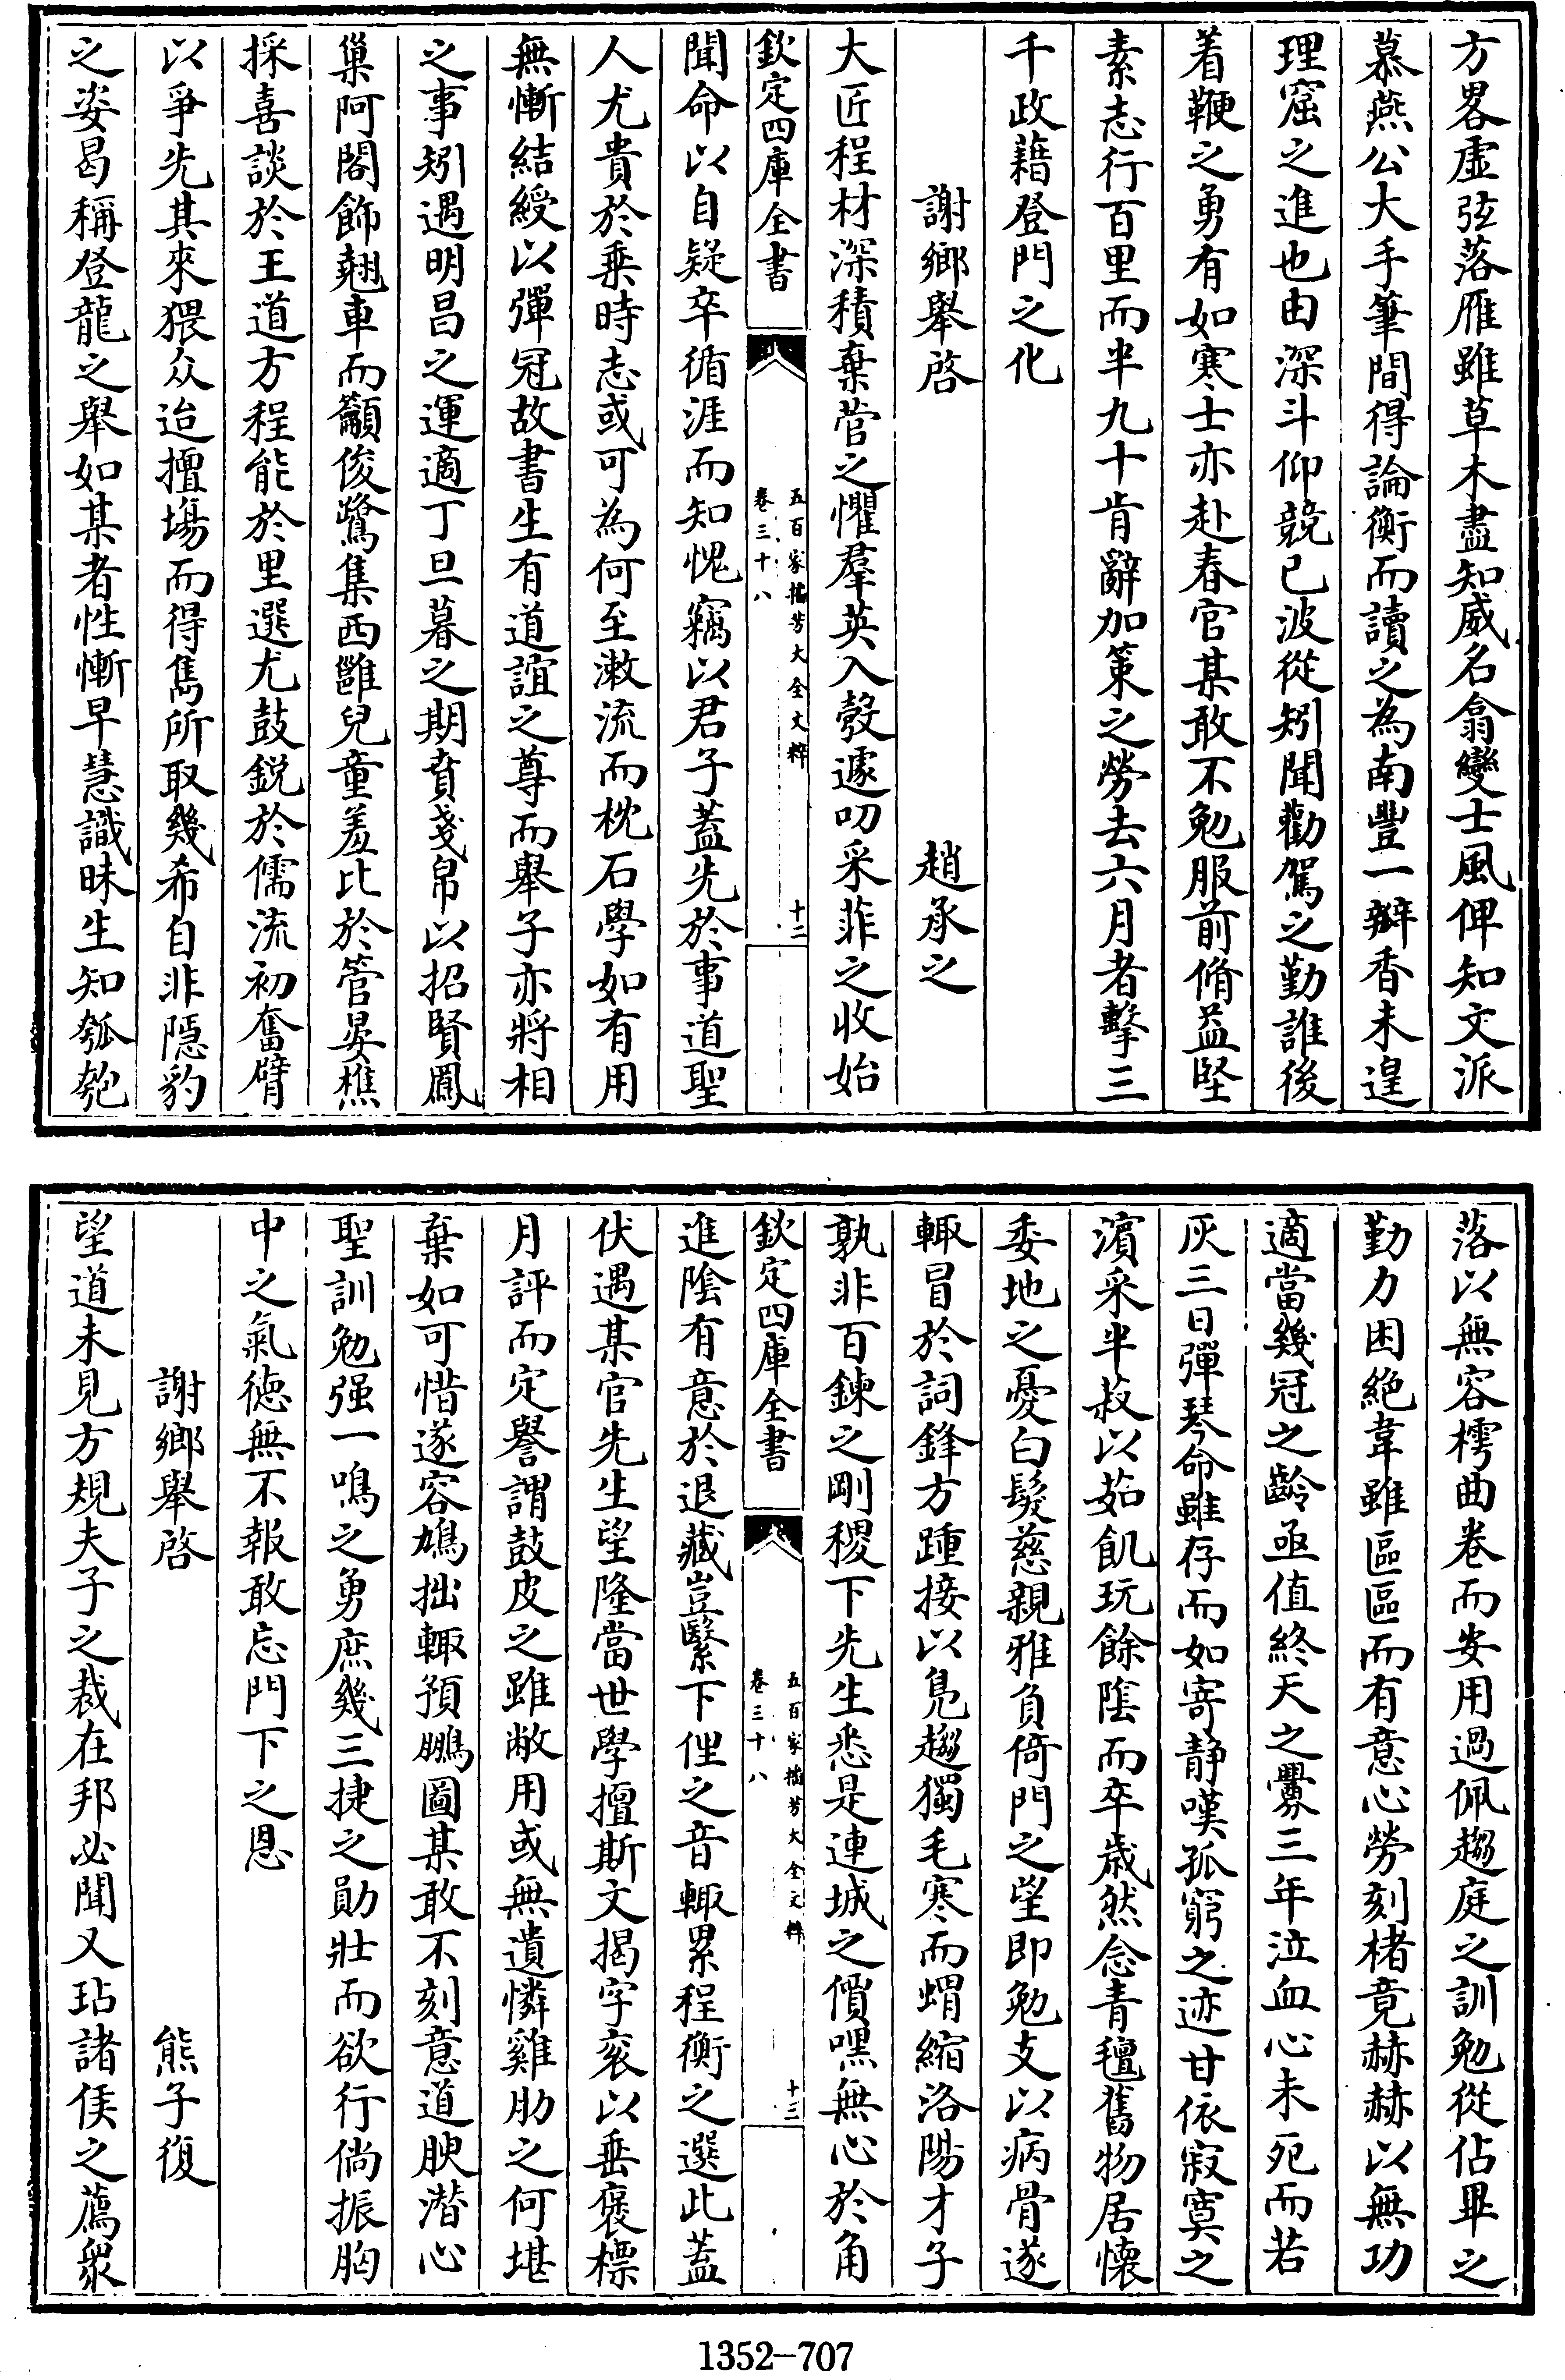 方畧虛弦落雁雖草木盡知威名翕變士風俾知文派
慕燕公大手筆間得論衡而讀之為南豐一瓣香未遑
理窟之進也由深斗仰競已波從矧聞勸駕之勤誰後
着鞭之勇有如寒士亦赴春官某敢不勉服前脩益堅
素志行百里而半九十肯辭加策之勞去六月者擊三
千政藉登門之化
謝鄉舉啓
趙承之
大匠程材深積棄菅之懼羣英入彀遽叨采菲之收始
欽定四庫全書
五百家播芳大全文粹
卷三十八
十二
聞命以自疑卒循涯而知愧竊以君子蓋先於事道聖
人尤貴於乗時志或可為何至漱流而枕石學如有用
無慚結綬以彈冠故書生有道誼之尊而舉子亦將相
之事矧遇明昌之運適丁旦暮之期賁戔帛以招賢鳳
巢阿閣飾翹車而籲俊鷺集西雝兒童羞比於管晏樵
採喜談於王道方程能於里選尤鼓鋭於儒流初奮臂
以爭先其來猥众迨擅塲而得雋所取幾希自非隠豹
之姿曷稱登龍之舉如某者性慚早慧識昧生知瓠匏
落以無容樗曲卷而安用過佩趨庭之訓勉從佔畢之
勤力困絶韋雖區區而有意心勞刻楮竟赫赫以無功
適當幾冠之齡亟值終天之釁三年泣血心未死而若
灰三日彈琴命雖存而如寄静嘆孤窮之迹甘依寂寞之
濵采半菽以茹飢玩餘隂而卒歳然念青氊舊物居懐
委地之憂白髮慈親雅負倚門之望即勉支以病骨遂
輙冒於詞鋒方踵接以鳬趨獨毛寒而蝟縮洛陽才子
孰非百鍊之剛稷下先生悉是連城之價嘿無心於角
欽定四庫全書
五百家播芳大全文粹
卷三十八
十三
進隂有意於退藏豈繄下俚之音輙累程衡之選此蓋
伏遇某官先生望隆當世學擅斯文揭字衮以垂褒標
月評而定譽謂鼓皮之雖敝用或無遺憐雞肋之何堪
棄如可惜遂容鳩拙輙預鵬圖某敢不刻意道腴潜心
聖訓勉强一鳴之勇庶幾三捷之勛壯而欲行倘振胸
中之氣徳無不報敢忘門下之恩
謝鄉舉啓
熊子復
望道未見方規夫子之裁在邦必聞又玷諸侯之薦衆
1352-707